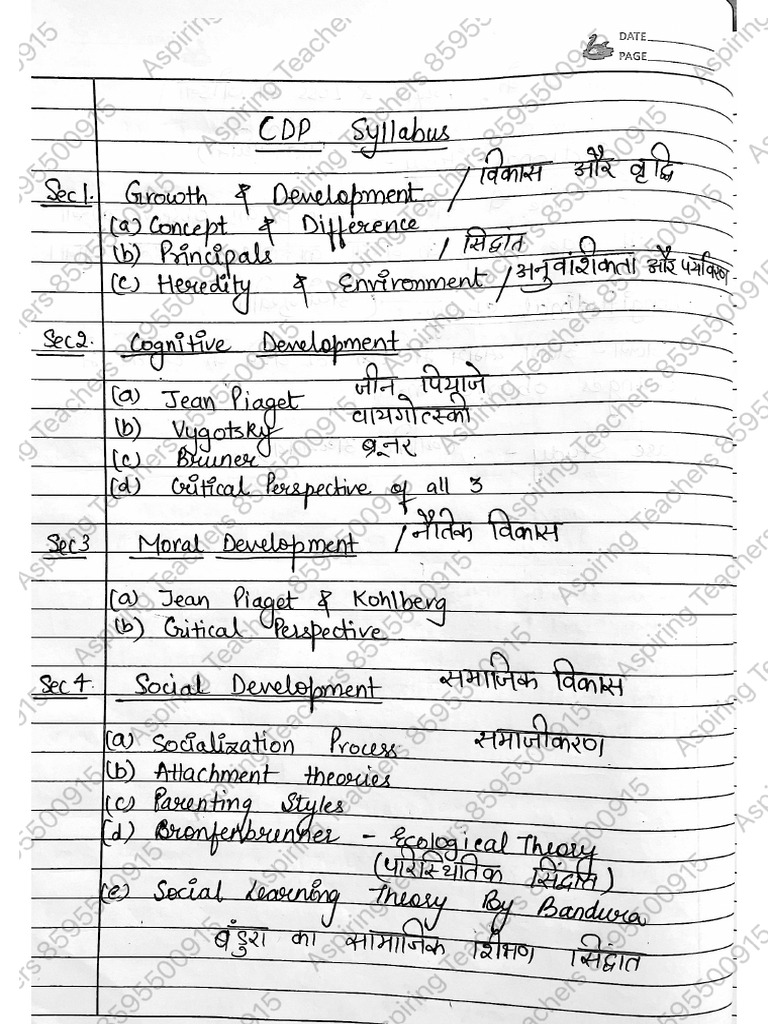 DATE
PAGE
CDP Syllabus
Sec 1. Growth & Development / विकास और वृद्धि
(a) Concept & Difference
(b) Principals / सिद्वांत
(c) Heredity & Environment / अनुवांशिकता और पर्यावरण
Sec 2. Cognitive Development
(a) Jean Piaget जीन पियाजे
(b) Vygotsky वायगोत्स्की
(c) Bruner ब्रूनर
(d) Critical Perspective of all 3
Sec 3 Moral Development / नैतिक विकास
(a) Jean Piaget & Kohlberg
(b) Critical Perspective
Sec 4. Social Development समाजिक विकास
(a) Socialization Process समाजीकरण
(b) Attachment theories
(c) Parenting Styles
(d) Bronfenbrunner - Ecological Theory
(पारिस्थितिक सिंद्वांत)
(e) Social Learning Theory By Bandura
बंडुरा का सामाजिक शिक्षण सिद्वांत
Aspiring Teachers 8595500915